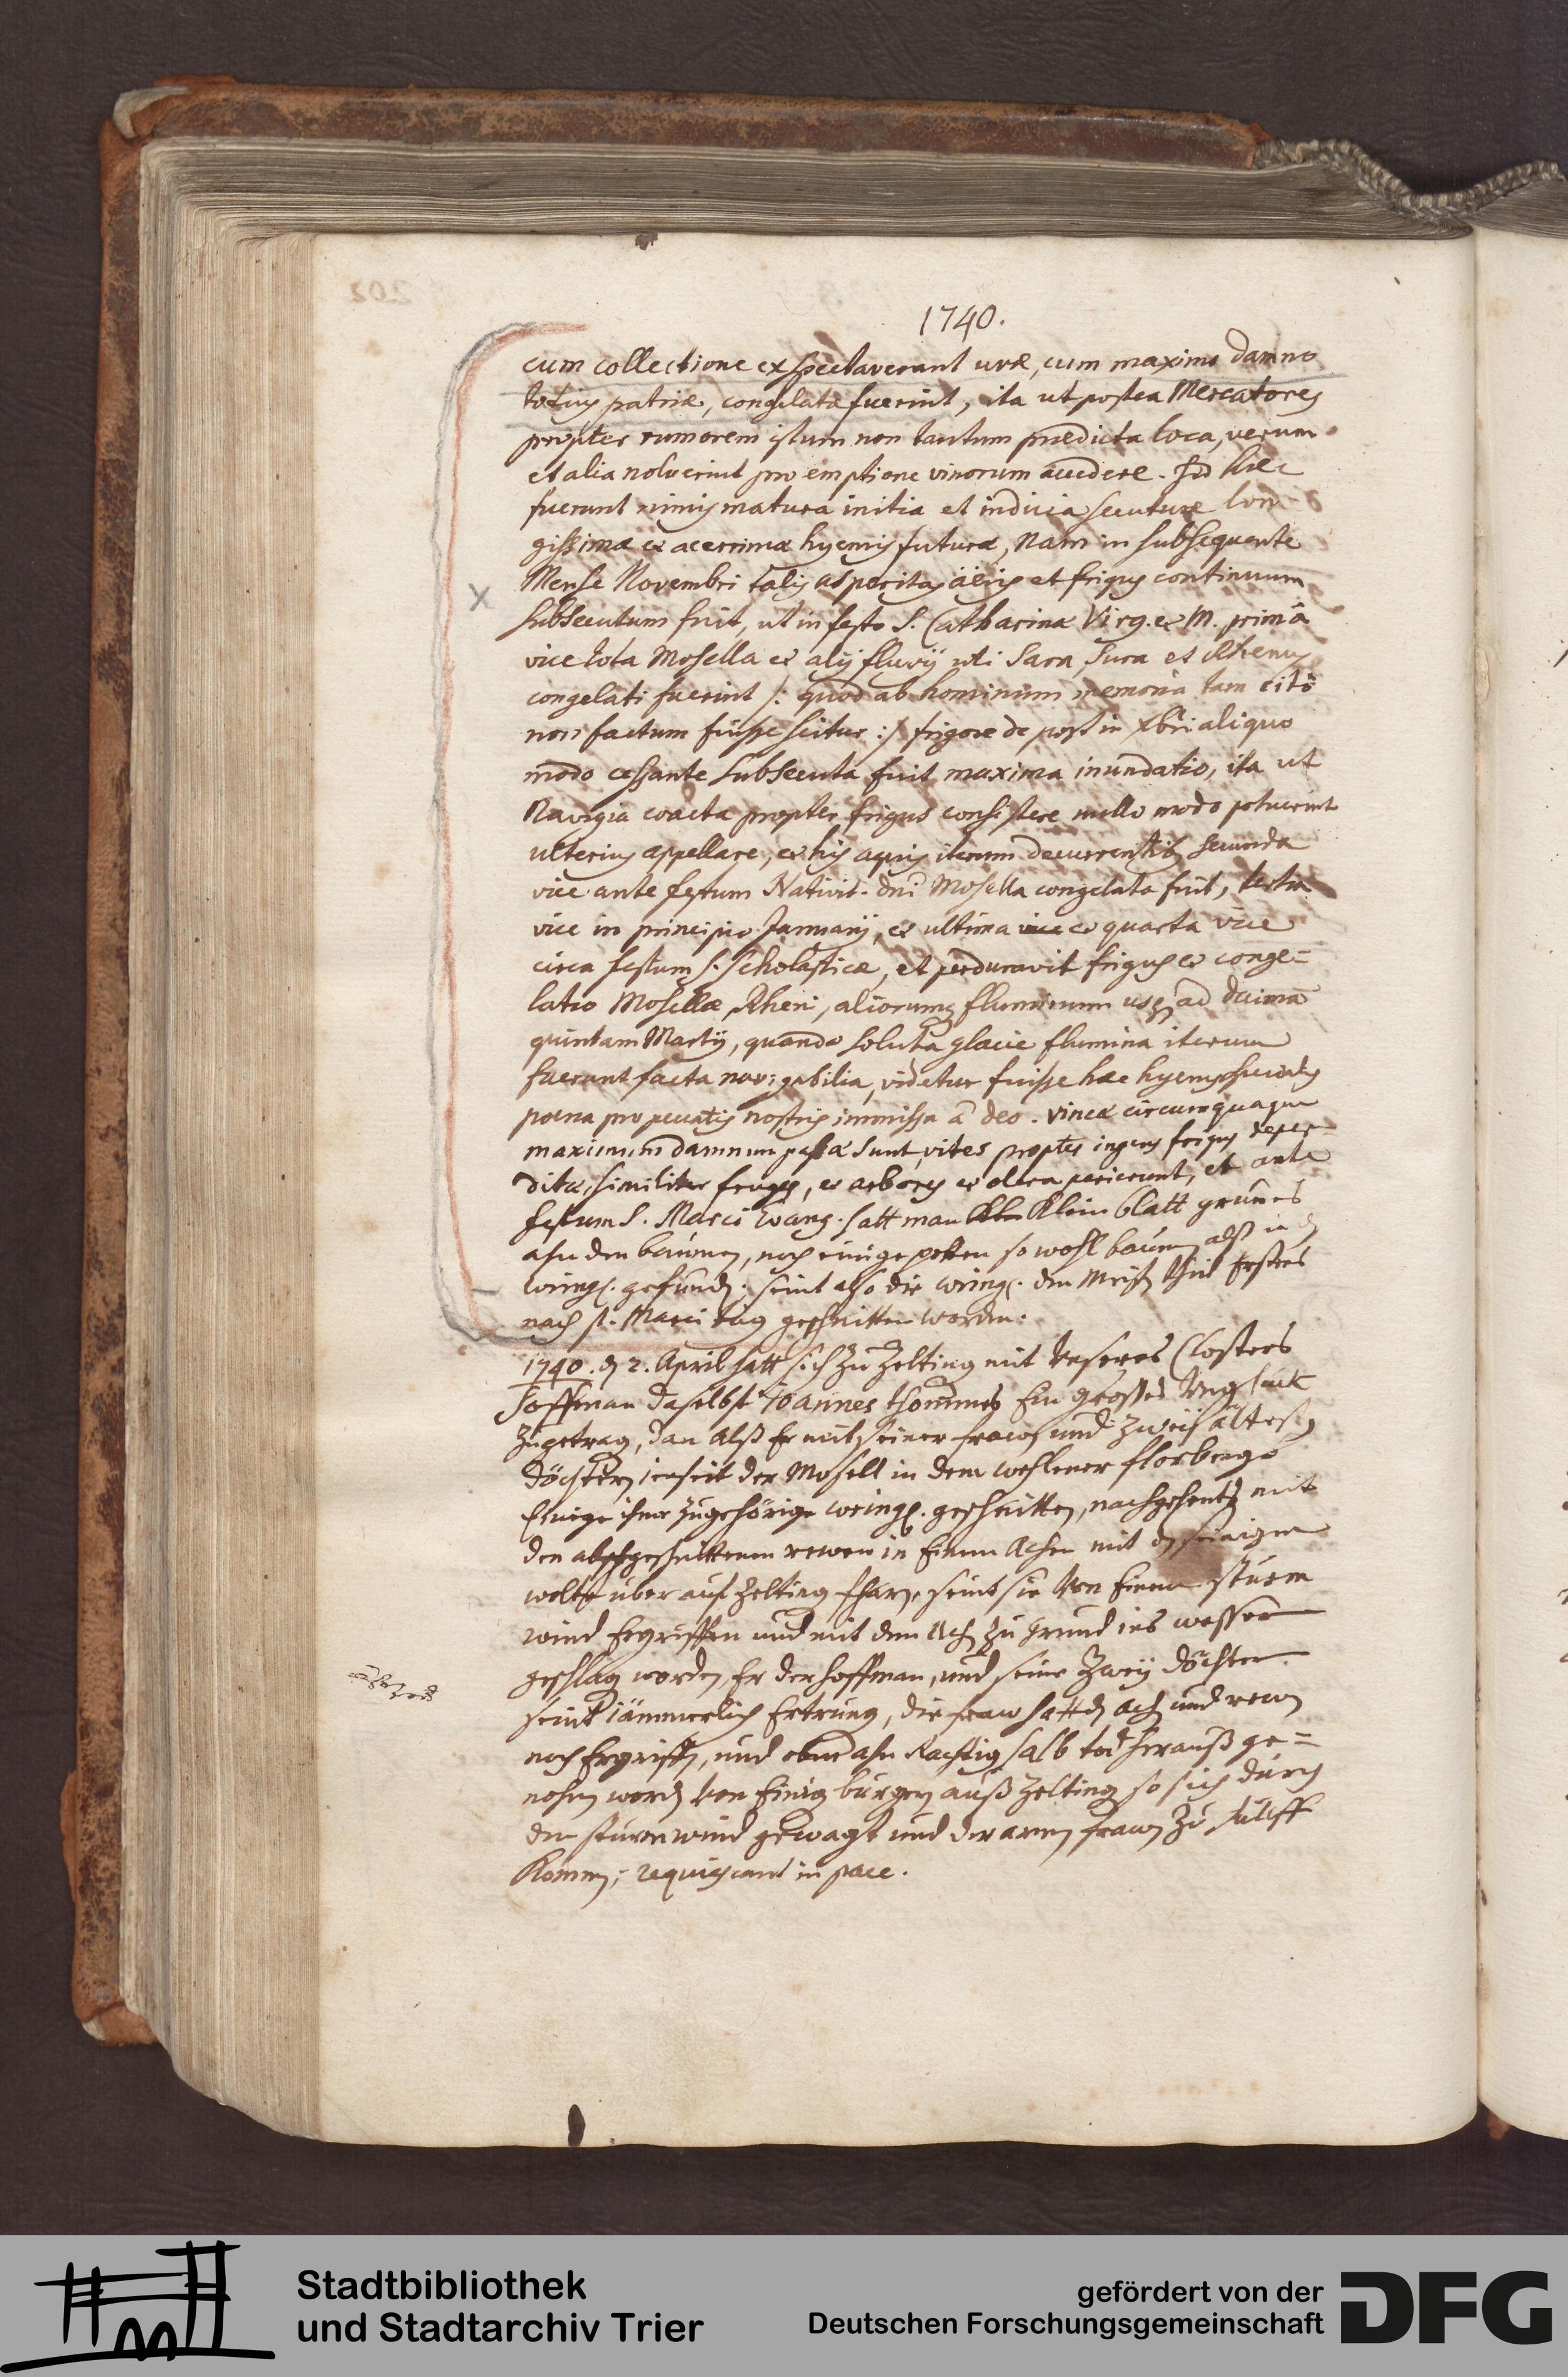 1740.
cum collectione exspectaverant uvæ, cum maximo damno
totius patriæ, congelatæ fuerint, ita ut postea Mercatores
propter rumorem istum non tantum prædicta loca, verum
et alia noluerint pro emptione vinorum accedere. sed hæc
fuerunt nimis matura initia et indicia secuturæ lon
gissimæ et acerrimæ hyemis futuræ, Nam in subsequente
Mense Novembri talis asperitas aëris et frigus continuum
subsecutum fuit, ut in festo S. Catharinæ Virg. et M. primâ
vice tota Mosella et alij fluvij uti Sara, Sura et Rhenus
congelati fuerint /: quod ab hominum memoria tam cito
non factum fuisse scitur :/ frigore de post in Xbri aliquo
modo cessante subsecuta fuit maxima inundatio, ita ut
Navigia coacta propter frigus consistere nullo modo potuerint
ulterius appellare, et his aquis iterum decurrentib secunda
vice ante festum Nativit. dni Mosella congelata fuit, tertia
vice in principio Januarij, et ultima vice et quarta vice
circa festum S. Scholasticæ, et perduravit frigus et conge=
latio Mosellæ, Rheni, aliorumq fluminum usq ad decimã
quintam Martij, quando soluta glacie flumina iterum
fuerunt facta navigabilia, videtur fuisse hæc hyems specialis
poena pro peccatis nostris immissa a deo. vineæ circumquaque
maximum damnum passæ sunt, vites propter ingens frigus deper=
ditæ, similiter fruges, et arbores et olera perierunt, et ante
festum S. Marci Evang. hatt man Klein blatt grünes
ahn den baumen, noch einige so wohl baum alß in d
wing. gefund; seint also die wing. den meist theil Erstens
nach st. Marci tag geschnitten worden.
1740. d 2. April hatt sich zu Zelting mit Unseres Closters
Hoffman daselbst Joannes thommes Ein grosses Unglück
zugetrag, dan alß Er mit seiner frawen und zweij ältesten
döchtern jenseit der Mosell in dem wehlener florberge
Einige ihme zugehörige wing. geschnitten, nachgehents mit
den abgeschnittenen rewen in Einem Achen mit d seinigen
wolte über auf Zelting fharen, seint sie Von Einem sturm
wind Ergriffen und mit dem Ach zu grund ins wasser
geschlag worden, Er der hoffman, und seine Zweij döchter
seint jämmerlich Ertrunk, die fraw hatt d ach und rewen
noch Ergriffen, und ahn Rachtig halb tod herauß ge=
nohmen word Von Einig bürgern auß Zelting so sich durch
den sturmwind gewagt und der armen frawen zu hülff
Kommen; requiescant in pace.
Stadtbibliothek
und Stadtarchiv Trier
gefördert von der
Deutschen Forschungsgemeinschaft
DFG